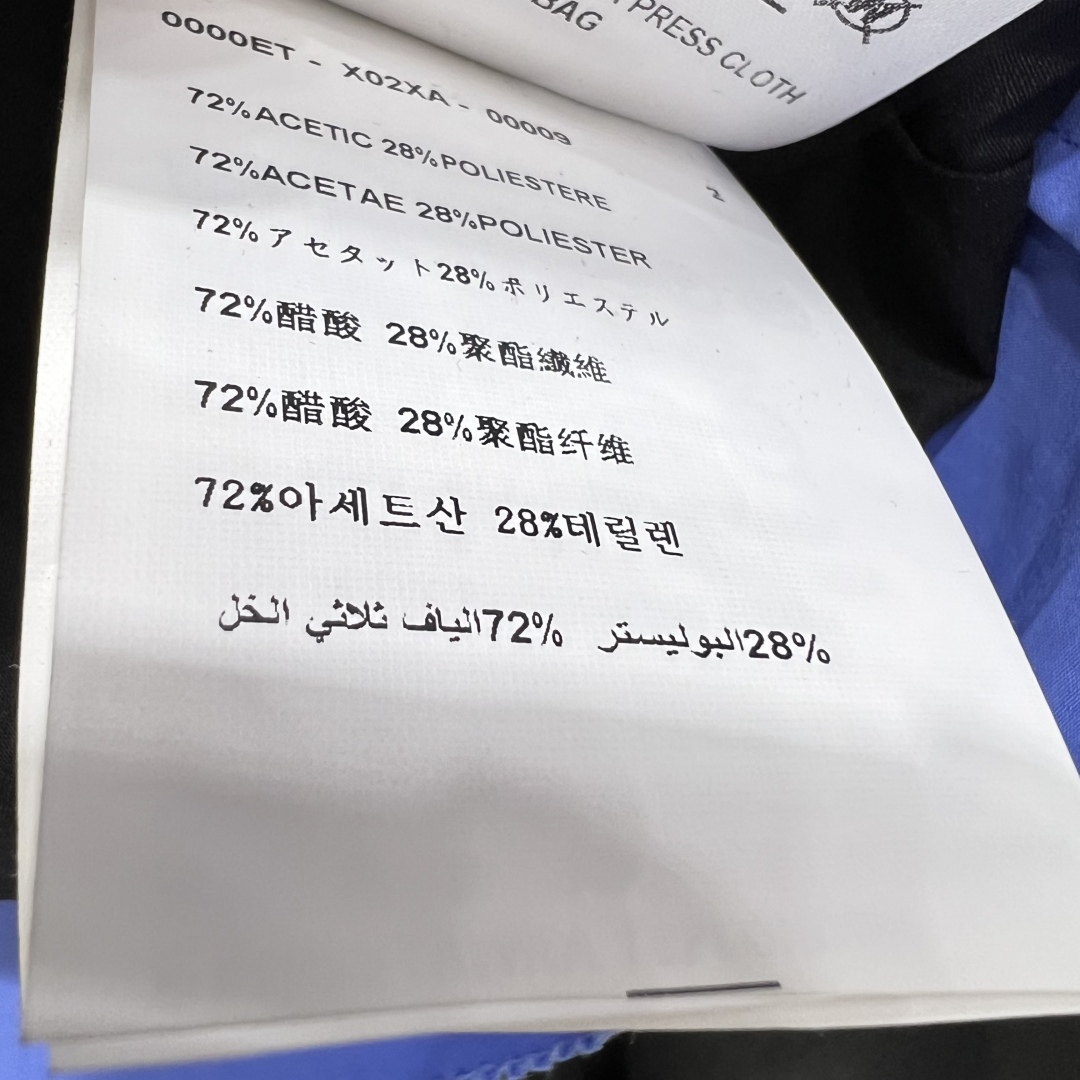 PRESS CLOTH
BAG
0000ET - X02XA - 00009
2
72%ACETIC 28%POLIESTERE
72%ACETAE 28%POLIESTER
72%アセタット28%ポリエステル
72%醋酸 28%聚酯纖維
72%醋酸 28%聚酯纤维
72%아세트산 28%테릴렌
28%البوليستر 72%الياف ثلاثي الخل